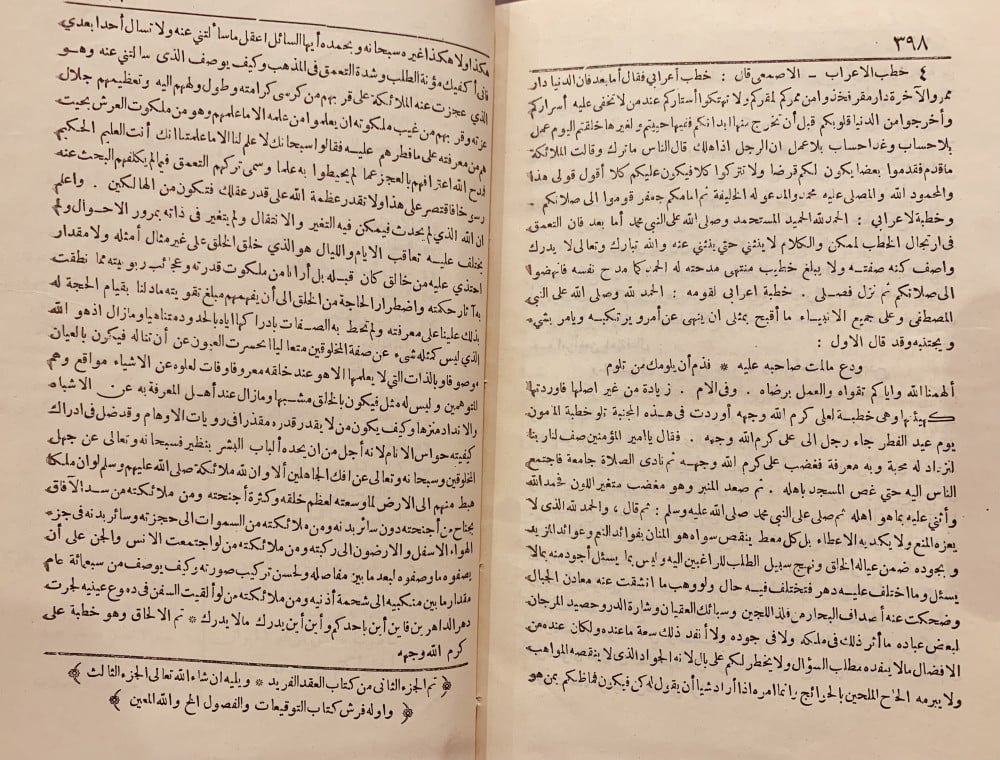 ٣٩٨
٤ خطب الاعراب – الاصمعى قال : خطب أعرابي فقال أما بعد فان الدنيا دار
ممر والآخرة دار مقر فخذوا من ممركم لمقركم ولا تهتكوا أستاركم عند من لا تخفى عليه أسراركم
وأخرجوا من الدنيا قلوبكم قبل أن تخرج منها ابدانكم ففيها حييتم ولغيرها خلقتم اليوم عمل
بلا حساب وغدا حساب بلا عمل ان الرجل اذا هلك قال الناس ما ترك وقالت الملائكة
ما قدم فقدموا بعضا يكون لكم قرضا ولا تتركوا كلا فيكون عليكم كلا أقول قولى هذا
والمحمود الله والمصلى عليه محمد والمدعو له الخليفة ثم امامكم جعفر قوموا الى صلاتكم .
وخطبة لاعرابي : الحمد لله الحميد المستحمد وصلى الله على النبي محمد أما بعد فان التعمق
فى ارتجال الخطب لممكن والكلام لا ينثني حتي ينثني عنه والله تبارك وتعالى لا يدرك
واصف كنه صفته ولا يبلغ خطيب منتهى مدحته له الحمد كما مدح نفسه فانهضوا
الى صلاتكم ثم نزل فصلى . خطبة اعرابي لقومه : الحمد لله وصلى الله على النبي
المصطفى وعلى جميع الانبياء ما أقبح بمثلى ان ينهى عن أمر ويرتكبه ويامر بشيء
ويجتنبه وقد قال الاول :
ودع مالمت صاحبه عليه * فذم أن يلومك من تلوم
ألهمنا الله وايا كم تقواه والعمل برضاه . وفى الام . زيادة من غير اصلها فاوردتها
كهيئتها وهى خطبة لعلى كرم الله وجهه أوردت فى هذه المجنبة تلو خطبة المامون
يوم عيد الفطر جاء رجل الى على كرم الله وجهه . فقال يا امير المؤمنين صف لنا ربنا
لنزداد له محبة وبه معرفة فغضب على كرم الله وجهه ثم نادى الصلاة جامعة فاجتمع
الناس اليه حتي غص المسجد باهله . ثم صعد المنبر وهو مغضب متغير اللون فحمد الله
وأثني عليه بما هو اهله ثم صلى على النبي محمد صلى الله عليه وسلم : ثم قال ، والحمد لله الذى لا
يعزه المنع ولا يكديه الاعطاء بل كل معط ينقص سواه هو المنان بفوائد النعم وعوائد المزيد
وبجوده ضمن عيالة الخلق ونهج سبيل الطلب للراغبين اليه وليس بما يسئل أجود منه بما لا
يسئل وما اختلف عليه دهر فتختلف فيه حال ولو وهب ما انشقت عنه معادن الجبال
وضحكت عنه أصداف البحار من فلذ اللجين وسبائك العقيان وشارة الدر وحصيد المرجان
لبعض عباده ما أثر ذلك فى ملكه ولا فى جوده ولا أنفد ذلك سعة ما عنده ولكان عنده من
الافضال مالا ينفده مطاب السؤال ولا يخطر لكم على بال لانه الجواد الذى لا ينقصه المواهب
ولا يبرمه الحاح الملحين بالحوائج وانما امره اذا أراد شيأ أن يقول له كن فيكون فما ظنكم بمن هو
هكذا ولا هكذا غيره سبحانه وبحمده أيها السائل اعقل ما سألتني عنه ولا تسال أحدا بعدي
فانى أكفيك مؤنة الطلب وشدة التعمق فى المذهب وكيف يوصف الذى سالتني عنه وهو
الذي عجزت عنه الملائكة على قربهم من كرسى كرامته وطول ولههم اليه وتعظيمهم جلال
عزته وقربهم من غيب ملكوته ان يعلموا من علمه الا ما علمهم وهو من ملكوت العرش بحيث
هم من معرفته على ما فطرهم عليه فقالوا سبحانك لا علم لنا الا ما علمتنا انك أنت العليم الحكيم
فمدح الله اعترافهم بالعجز عما لم يحيطوا به علما وسمى تركهم التعمق فيما لم يكلفهم البحث عنه
رسوخا فاقتصر على هذا ولا تقدر عظمة الله على قدر عقلك فتكون من الهالكين . واعلم
ان الله الذي لم يحدث فيمكن فيه التغير والانتقال ولم يتغير فى ذاته بمرور الاحوال ولم
يختلف عليه تعاقب الايام والليال هو الذي خلق الخلق على غير مثال أمثله ولا مقدار
احتذي عليه من خالق كان قبله بل أرانا من ملكوت قدرته وعجائب ربوبيته مما نطقت
به آثار حكمته واضطرار الحاجة من الخلق الى أن يفهمهم مبلغ تقويته ما دلنا بقيام الحجة له
بذلك علينا على معرفته ولم تحط به الصفات بادراكها اياه بالحدود متناهيا وما زال اذ هو الله
الذي ليس كمثله شيء عن صفة المخلوقين متعاليا انحسرت العيون عن أن تناله فيكون بالعيان
موصوفا وبالذات التي لا يعلمها الا هو عند خلقه معروفا وفات لعلوه عن الاشياء مواقع وهم
المتوهمين وليس له مثل فيكون بالخلق مشبها وما زال عند أهل المعرفة به عن الاشباه
والانداد منزها وكيف يكون من لا يقدر قدره مقدرا فى رويات الاوهام وقد ضل فى ادراك
كيفيته حواس الانام لانه أجل من ان يحده ألباب البشر بنظير فسبحانه وتعالى عن جهل
المخلوقين وسبحانه وتعالى عن افك الجاهلين ألا وان لله ملائكة صلى الله عليهم وسلم لو ان ملكا
هبط منهم الى الارض لما وسعته لعظم خلقه وكثرة أجنحته ومن ملائكته من سد الآفاق
بجناح من أجنحته دون سائر بدنه ومن ملائكته من السموات الى حجزته وسائر بدنه فى جزء
الهواء الاسفل والارضون الى ركبته ومن ملائكته من لو اجتمعت الانس والجن على أن
يصفوه ما وصفوه لبعد ما بين مفاصله ولحسن تركيب صورته وكيف يوصف من سبعمائة عام
مقدار ما بين منكبيه الى شحمة أذنيه ومن ملائكته من لو ألقيت السفن فى دموع عينيه لجرت
دهر الداهرين فاين أين باحدكم وأين أين يدرك مالا يدرك * تم الالحاق وهو خطبة على
كرم الله وجهه
﴿ تم الجزء الثانى من كتاب العقد الفريد * ويليه ان شاء الله تعالى الجزء الثالث ﴾
﴿ واوله فرش كتاب التوقيعات والفصول الخ والله المعين ﴾